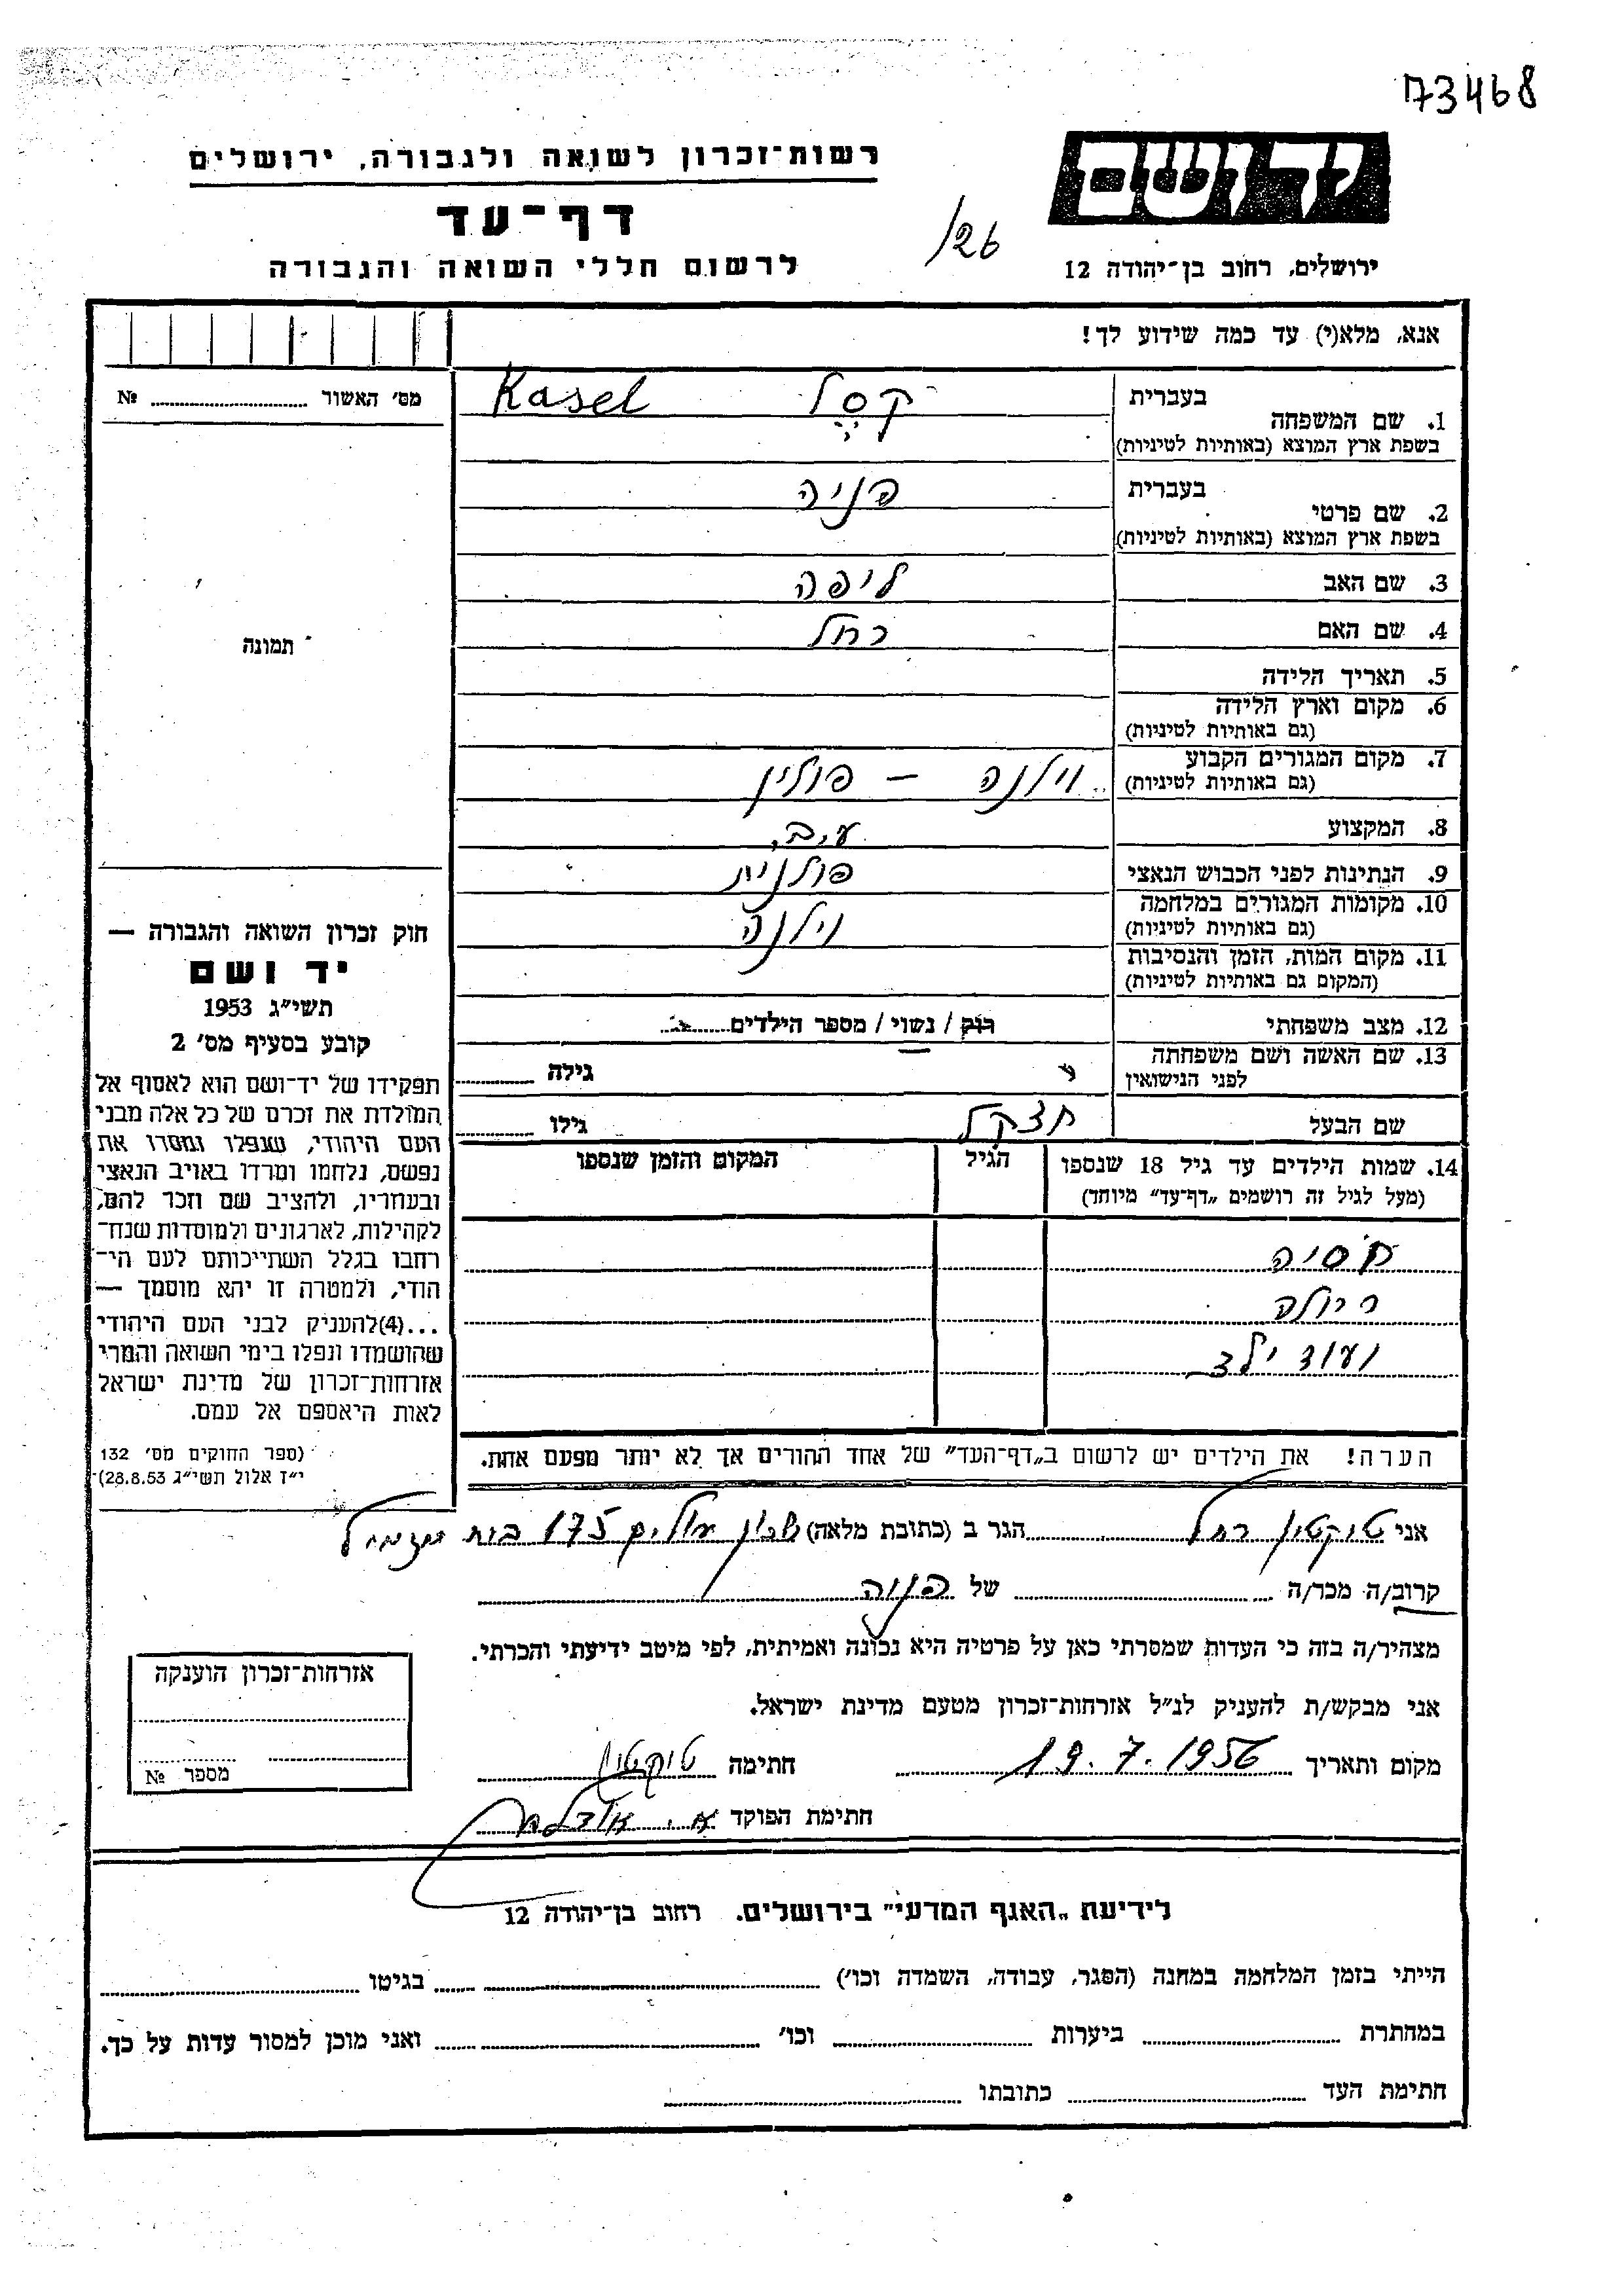 73468
יד ושם
רשות־זכרון לשואה ולגבורה, ירושלים
דף־עד
/26
לרשום חללי השואה והגבורה
ירושלים, רחוב בן־יהודה 12
אנא, מלא(י) עד כמה שידוע לך!
בעברית
1. שם המשפחה קסל Kasel
בשפת ארץ המוצא (באותיות לטיניות)
בעברית
2. שם פרטי פניה
בשפת ארץ המוצא (באותיות לטיניות)
3. שם האב ליפה
4. שם האם רחל
5. תאריך הלידה
6. מקום וארץ הלידה
(גם באותיות לטיניות)
7. מקום המגורים הקבוע וילנה – פולין
(גם באותיות לטיניות)
8. המקצוע ע.ב.
9. הנתינות לפני הכבוש הנאצי פולנית
10. מקומות המגורים במלחמה וילנה
(גם באותיות לטיניות)
11. מקום המות, הזמן והנסיבות
(המקום גם באותיות לטיניות)
12. מצב משפחתי רוק / נשוי / מספר הילדים
13. שם האשה ושם משפחתה
לפני הנישואין גילה
שם הבעל חצקל גילו
14. שמות הילדים עד גיל 18 שנספו הגיל המקום והזמן שנספו
(מעל לגיל זה רושמים „דף־עד" מיוחד)
חסיה
ועוד ילד
הערה! את הילדים יש לרשום ב„דף־העד" של אחד ההורים אך לא יותר מפעם אחת.
מס׳ האשור №
תמונה
חוק זכרון השואה והגבורה —
יד ושם
תשי״ג 1953
קובע בסעיף מס׳ 2
תפקידו של יד־ושם הוא לאסוף אל
המולדת את זכרם של כל אלה מבני
העם היהודי, שנפלו ומסרו את
נפשם, נלחמו ומרדו באויב הנאצי
ובעוזריו, ולהציב שם וזכר להם,
לקהילות, לארגונים ולמוסדות שנח־
רבו בגלל השתייכותם לעם הי־
הודי, ולמטרה זו יהא מוסמך —
...(4)להעניק לבני העם היהודי
שהושמדו ונפלו בימי השואה והמרי
אזרחות־זכרון של מדינת ישראל
לאות היאספם אל עמם.
(ספר החוקים מס׳ 132
י״ז אלול תשי״ג 28.8.53)
אני טוקטין רחל הגר ב (כתובת מלאה) שכון עולים 175 בית
קרוב/ה מכר/ה של פניה
מצהיר/ה בזה כי העדות שמסרתי כאן על פרטיה היא נכונה ואמיתית, לפי מיטב ידיעתי והכרתי.
אני מבקש/ת להעניק לנ״ל אזרחות־זכרון מטעם מדינת ישראל.
מקום ותאריך 19.7.1956 חתימה טוקטין
חתימת הפוקד
אזרחות־זכרון הוענקה
מספר №
לידיעת „האגף המדעי" בירושלים. רחוב בן־יהודה 12
הייתי בזמן המלחמה במחנה (הסגר, עבודה, השמדה וכו׳) בגיטו
במחתרת ביערות וכו׳ ואני מוכן למסור עדות על כך.
חתימת העד כתובתו